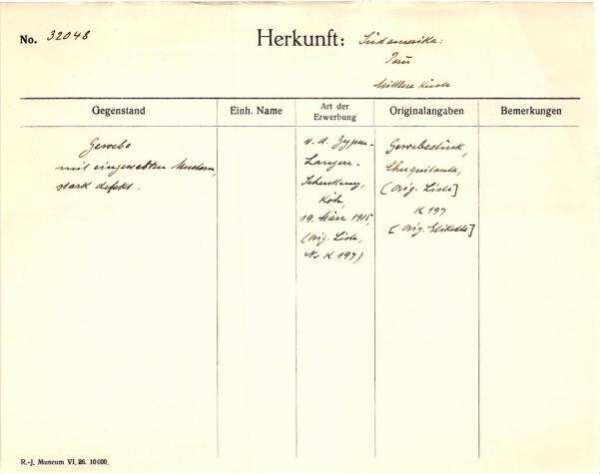 No. 32048
Herkunft: Südamerika:
Perú
Mittlere Küste
Gegenstand
Einh. Name
Art der Erwerbung
Originalangaben
Bemerkungen
Gewebe
mit eingewebten Mustern,
stark defekt.
v. d. Zypen-
Langen
Schenkung,
Köln,
19. März 1915,
(Orig. Liste,
No K 197)
Gewebestück,
Chuquitanta,
(Orig. Liste]
K 197
(Orig. Etikette]
R.-J. Museum VI. 26. 10000.